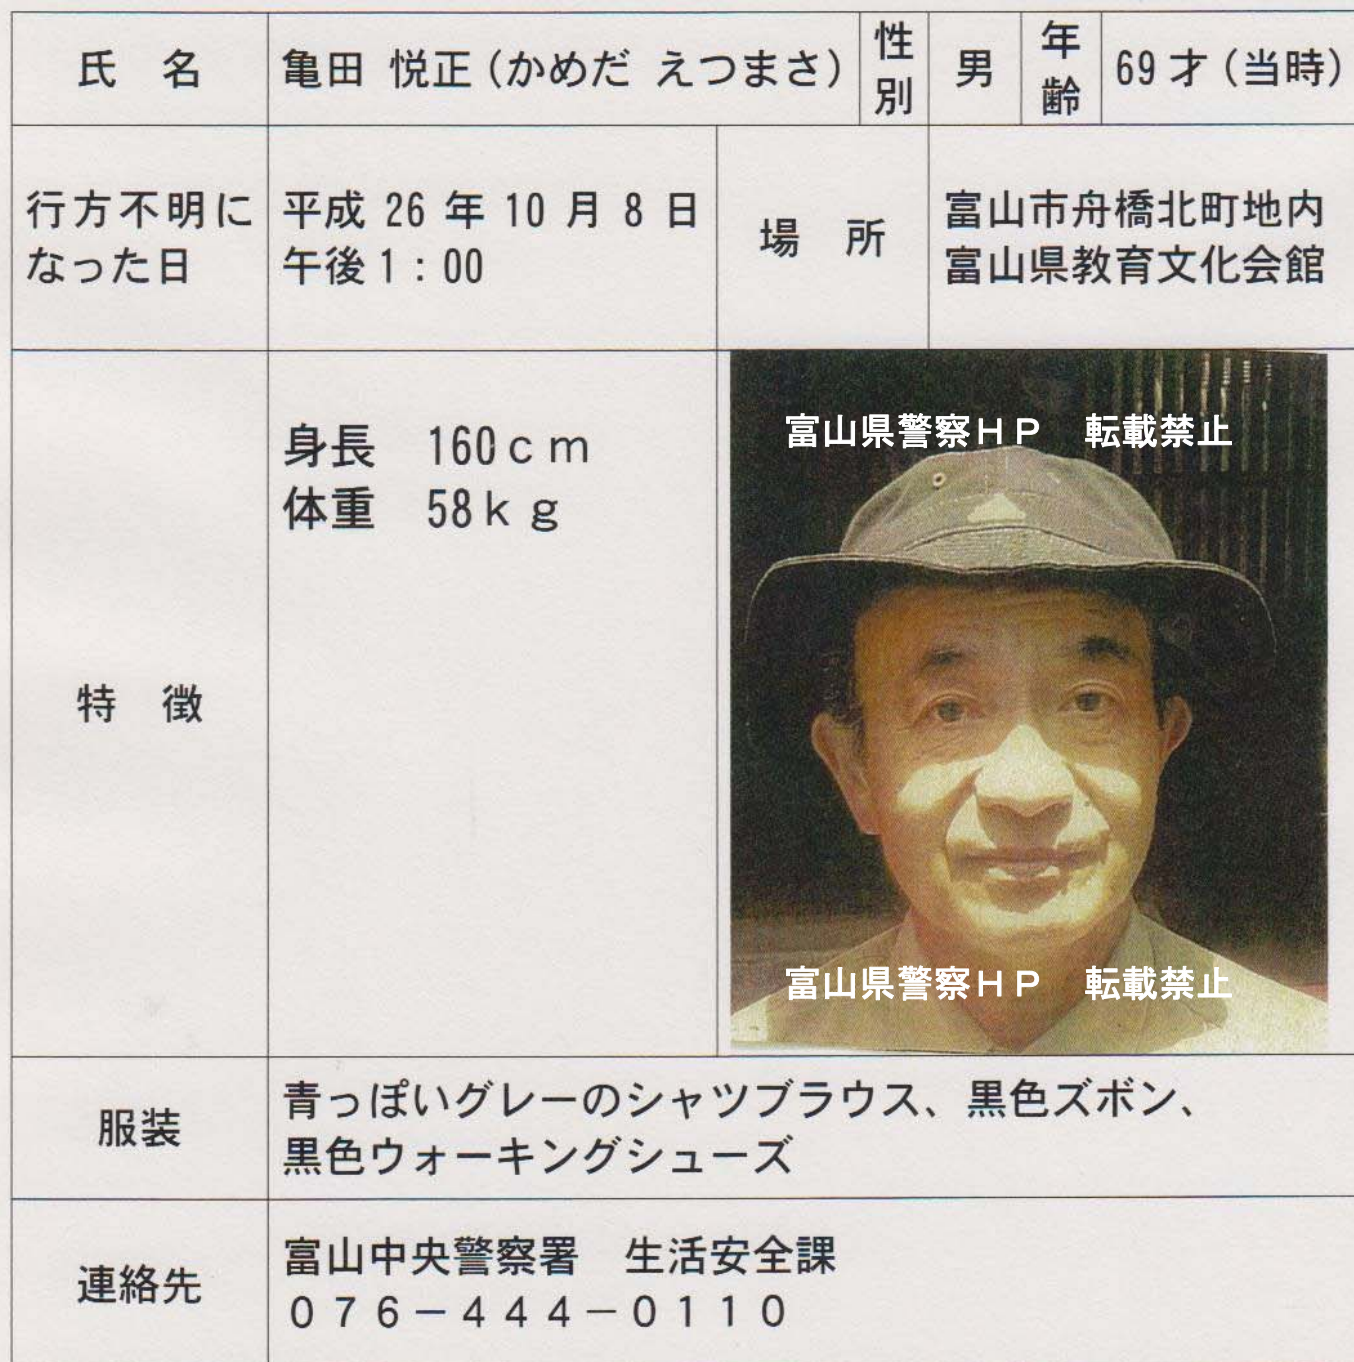 氏 名
亀田 悦正(かめだ えつまさ)
性別
男
年齢
69才(当時)
行方不明に
なった日
平成 26 年 10 月 8 日
午後1:00
場 所
富山市舟橋北町地内
富山県教育文化会館
特 徴
身長 160cm
体重 58kg
富山県警察HP 転載禁止
富山県警察HP 転載禁止
服装
青っぽいグレーのシャツブラウス、黒色ズボン、
黒色ウォーキングシューズ
連絡先
富山中央警察署 生活安全課
076-444-0110